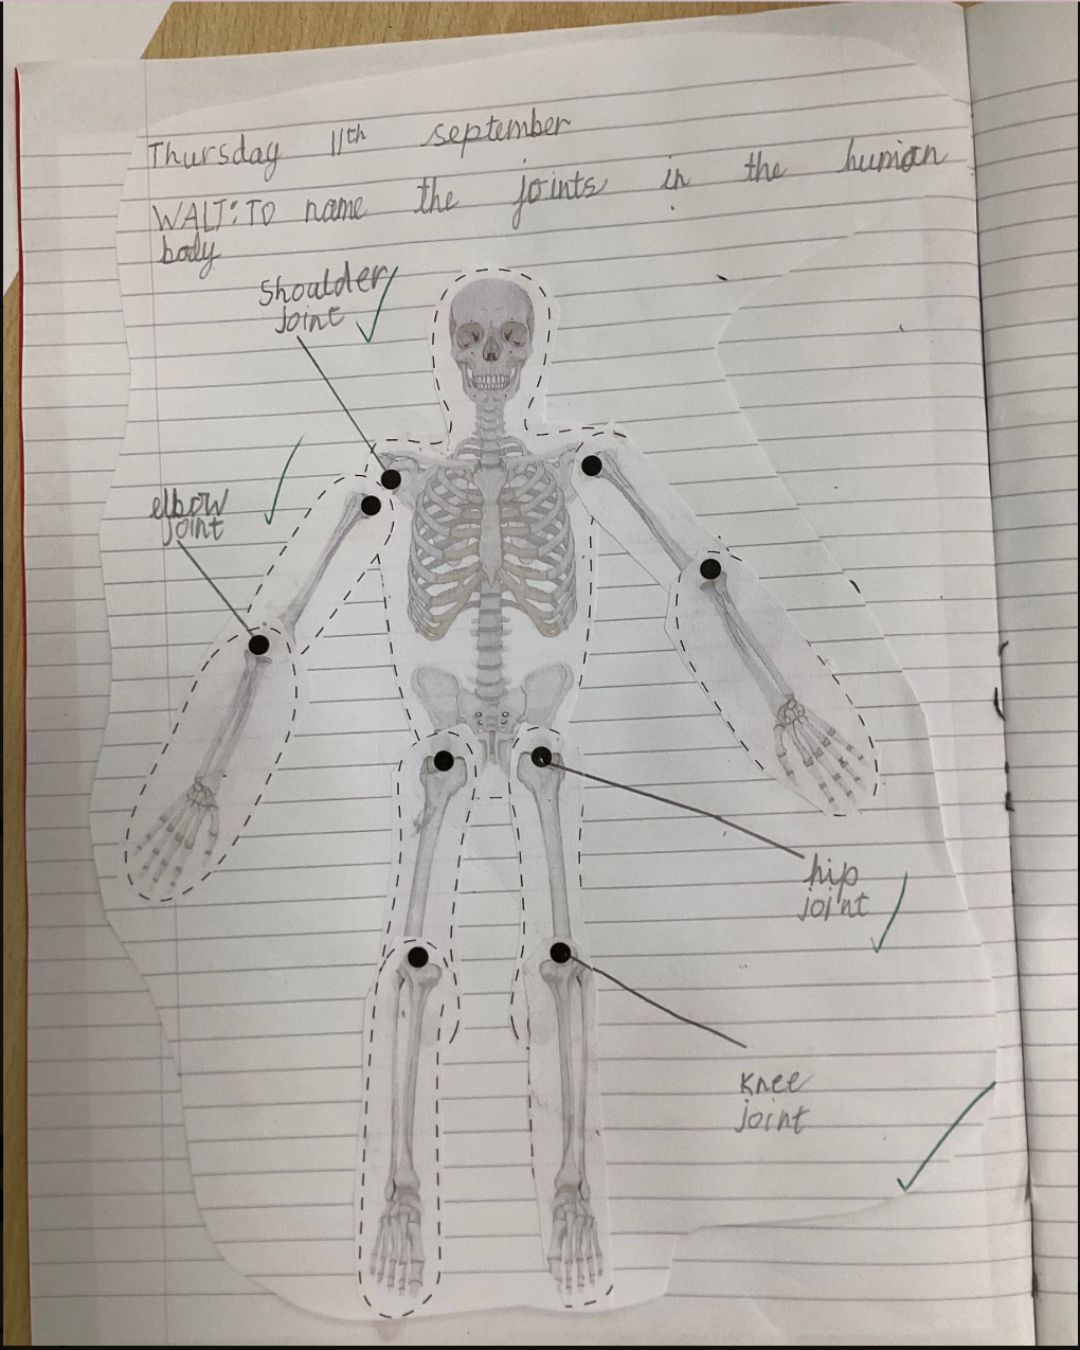 Thursday 11th september
WALT: TO name the joints in the human
body
Shoulder
joint
elbow
joint
hip
joint
Knee
joint